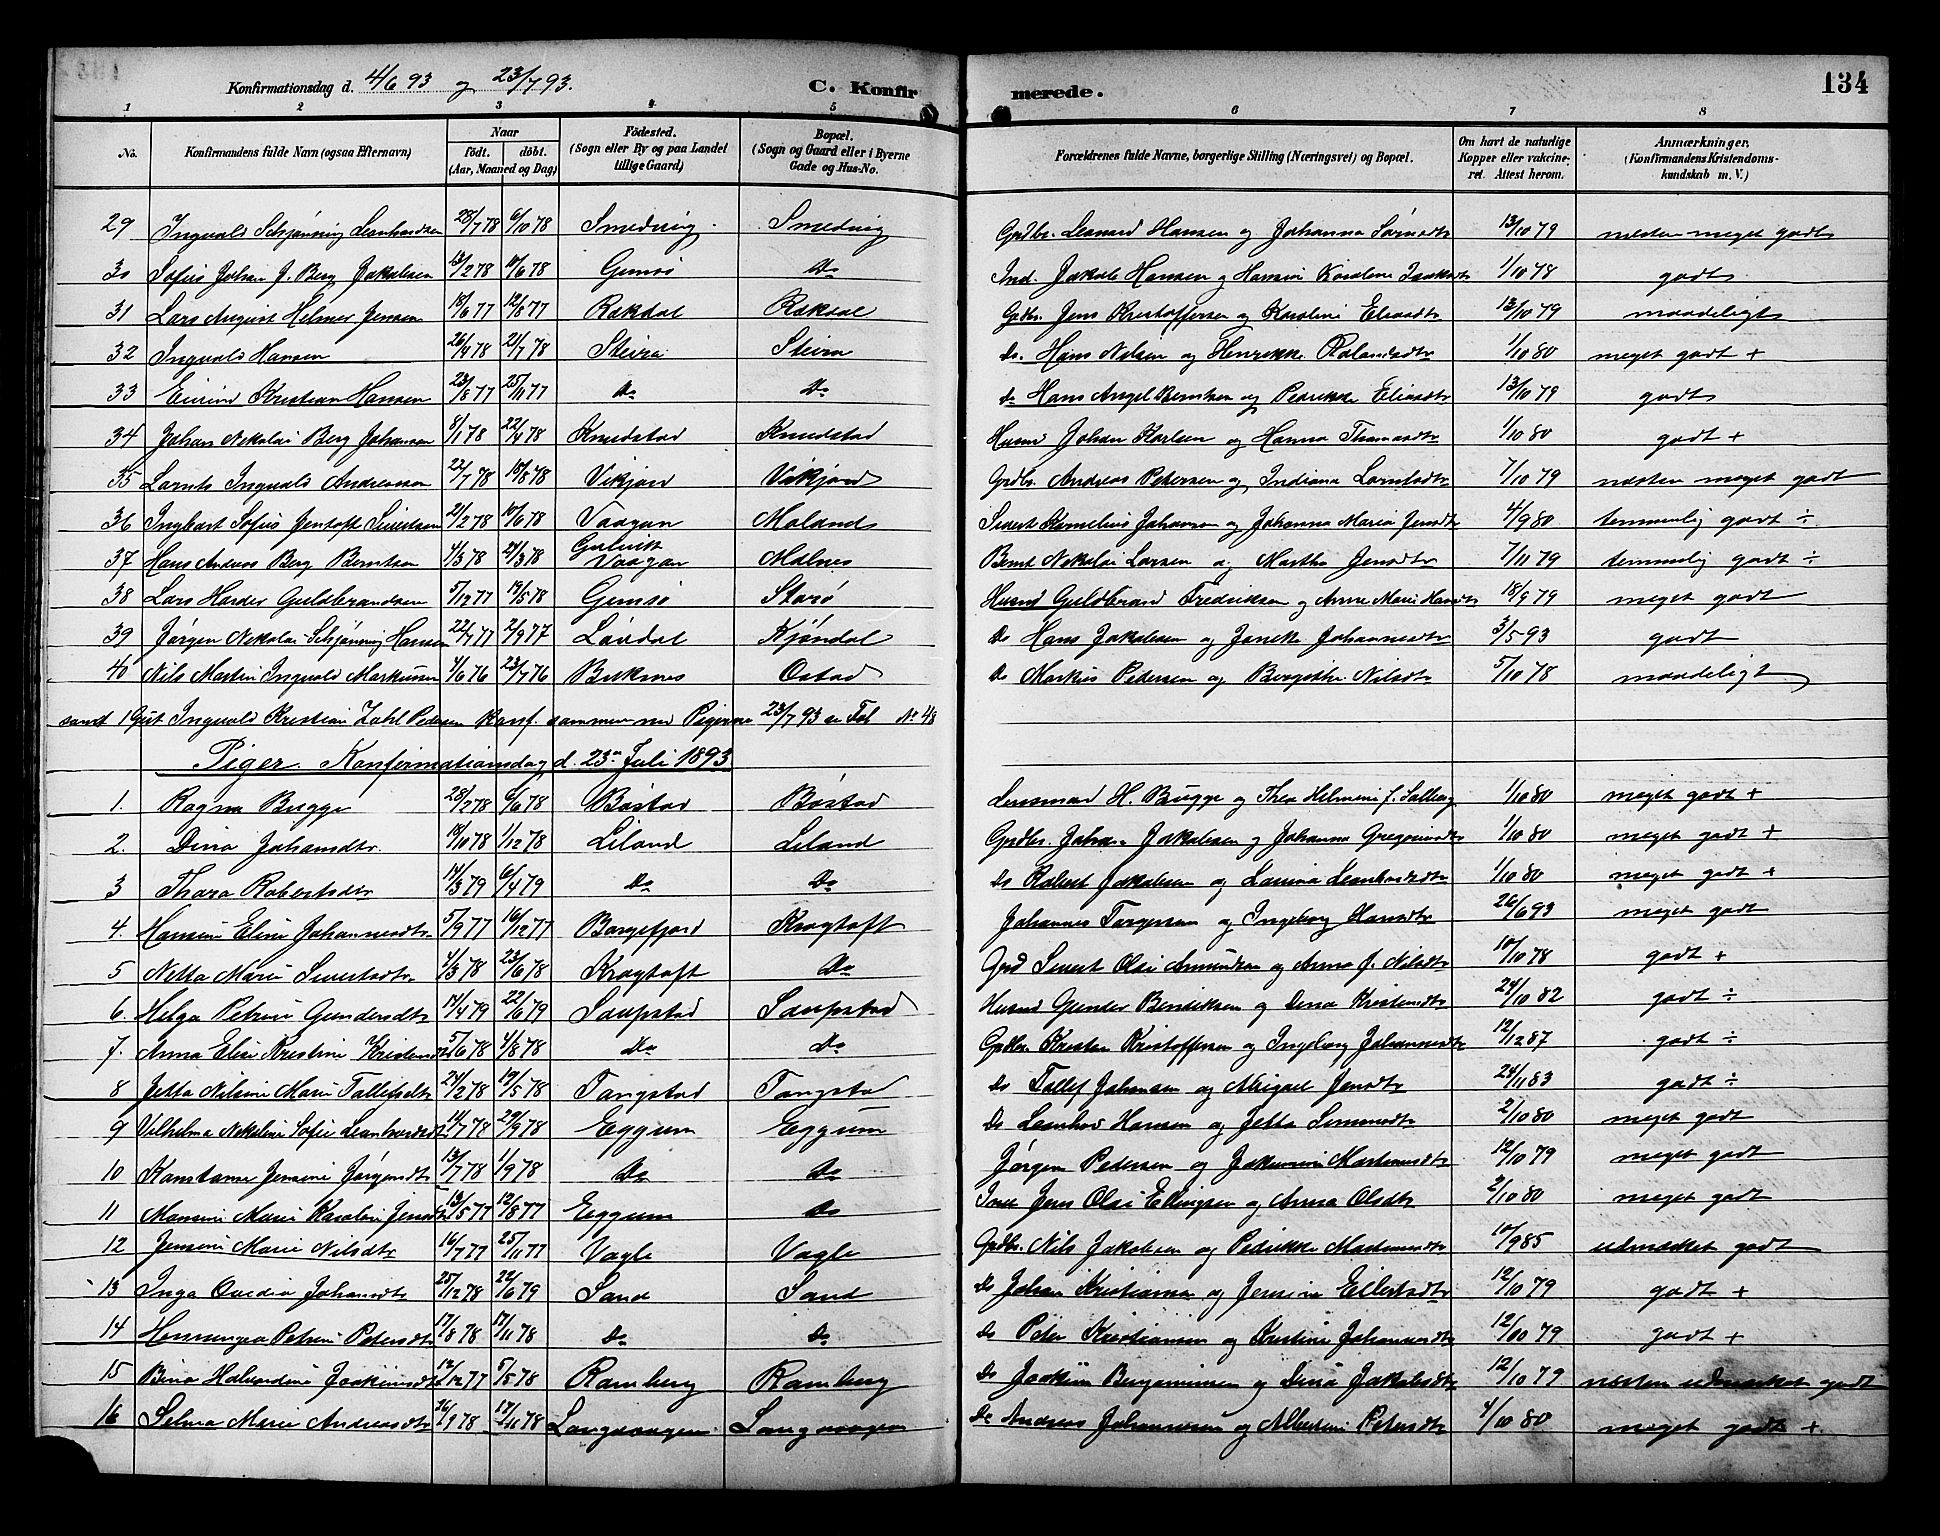 Konfirmationsdag d. 4/6 93 og 23/7 93. C. Konfirmerede. 134
1 2 3 4 5 6 7 8
No. Konfirmandens fulde Navn (ogsaa Efternavn) Naar födt. döbt. (Aar, Maaned og Dag) Födested. (Sogn eller By og paa Landet tillige Gaard) Bopæl. (Sogn og Gaard eller i Byerne Gade og Hus-No. Forældrenes fulde Navne, borgerlige Stilling (Næringsvei) og Bopæl. Om havt de naturlige Kopper eller vakcineret. Attest herom. Anmærkninger, (Konfirmandens Kristendomskundskab m. V.)
29 Ingvald Schjønning Leonhardsen 28/7 78 6/10 78 Smedvig Smedvig Grdbr. Leonard Hansen og Johanna Sørnsdtr 13/10 79 næsten meget godt
30 Sofus Johan J. Berg Jakobsen 13/2 78 10/6 78 Gimsø Do Ind. Jakob Hansen og Hansine Karoline Isaksdtr 1/10 78 godt
31 Lars August Helmer Jensen 18/6 77 12/8 77 Rekdal Rekdal Grdbr. Jens Kristoffersen og Karoline Eliasdtr 13/10 79 maadeligt
32 Ingvald Hansen 26/4 78 21/7 78 Steira Steira Do. Hans Nilsen og Henrikke Rolandsdtr 1/10 80 meget godt +
33 Eivind Kristian Hansen 23/8 77 25/11 77 Do Do Do Hans Angel Berntsen og Pedrikke Eliasdtr 13/10 79 godt
34 Johan Nikolai Berg Johansen 8/1 78 22/4 78 Knudstad Knudstad Husmd Johan Karlsen og Hanna Thomasdtr 1/10 80 godt +
35 Lornts Ingvald Andreassen 22/7 78 18/8 78 Vikjord Vikjord Grdbr. Andreas Petersen og Indiana Lorntsdtr 7/10 79 næsten meget godt
36 Ingbart Sofus Jentoft Sivertsen 21/2 78 10/6 78 Vaagan Moland Sivert Kornelius Johansen og Johanna Maria Jensdtr 4/9 80 temmelig godt ÷
37 Hans Andreas Berg Berntsen 4/3 78 24/3 78 Gulvik Vaagan Molnes Bernt Nikolai Larsen og Martha Jensdtr 7/11 79 temmelig godt ÷
38 Lars Harder Guldbrandsen 5/12 77 19/5 78 Gimsø Storø Husmd Guldbrand Fredriksen og Anne Marie Hansdtr 18/9 79 meget godt
39 Jørgen Nikolai Schjønning Hansen 22/7 77 2/9 77 Lövdal Kjøndal Do Hans Jakobsen og Janike Johannesdtr 3/5 93 godt
40 Nils Martin Ingvald Markussen 4/6 76 23/7 76 Buksnes Ostad Do Markus Pedersen og Bergithe Nilsdtr 5/10 78 maadeligt
samt 1 Gut Ingvald Kristian Zahl Pedersen Konf. sammen med Pigerne 23/7 93 se Fol No 48
Piger. Konfirmationsdag d. 23de Juli 1893
1. Ragna Bugge 28/2 78 6/6 78 Bøstad Bøstad Lensmand H. Bugge og Thea Helmine f. Solberg 1/10 80 meget godt +
2. Dina Johansdtr. 18/10 78 1/12 78 Liland Leland Grdbr. Johan Jakobsen og Johanna Gregoriusdtr 1/10 80 meget godt +
3 Thora Robertsdtr 14/3 79 6/4 79 Do Do Do Robert Jakobsen og Lovina Leonhardsdtr 1/10 80 meget godt +
4. Hansine Eline Johannesdtr. 5/9 77 16/12 77 Borgefjord Kragtoft Johannes Torgersen og Ingeborg Hansdtr 26/6 93 meget godt
5 Netta Marie Sivertsdtr 4/3 78 23/6 78 Kragtoft Do Grd Sivert Olai Amundsen og Anna f. Nilsdtr 10/10 78 godt +
6. Helga Petrine Gundersdtr 14/4 79 22/6 79 Saupstad Saupstad Husmd Gunder Benriksen og Dina Kristensdtr 24/10 82 godt ÷
7. Anna Elise Kristine Kristensdtr 5/6 78 4/8 78 Do Do Grdbr. Kristen Kristoffersen og Ingeborg Johannesdtr 12/12 87 godt ÷
8 Jetta Nilsine Marie Tollefsdtr 24/2 78 19/5 78 Tangstad Tangstad Do Tollef Johansen og Abigael Jensdtr 28/11 83 godt ÷
9 Vilhelma Nikoline Sofie Leonhardsdtr 14/7 78 29/9 78 Eggum Eggum Do Leonhard Hansen og Jetta Simonsdtr 2/10 80 meget godt
10 Konstanse Jensine Jørgensdtr 13/7 78 1/9 78 Do Do Jørgen Pedersen og Jakobine Mortensdtr 12/10 79 meget godt
11 Monsine Marie Karoline Jensdtr 13/5 77 12/8 77 Eggum Do Inds Jens Olai Ellingsen og Anna Olsdtr 2/10 80 meget godt
12 Jensine Marie Nilsdtr 16/7 77 25/11 77 Vagle Vagle Grdbr. Nils Jakobsen og Pedrikke Mortensdtr 10/9 85 udmærket godt
13 Inga Ovedia Johansdtr 25/12 78 22/6 79 Sand Sand Do Johan Kristiansen og Jensine Eilertsdtr 12/10 79 godt +
14 Henningea Petrine Petersdtr 17/8 78 17/11 78 Do Do Do Peter Kristiansen og Kristine Johansdtr 12/10 79 godt +
15 Bina Halvardine Joakimsdtr 12/12 77 5/5 78 Ramberg Ramberg Do Joakim Benjaminsen og Dina Jakobsdtr 12/10 79 næsten udmærket godt
16 Selma Marie Andreasdtr 26/9 78 17/11 78 Langvaagen Langvaagen Do Andreas Johannesen og Albertine Petersdtr 4/10 80 meget godt +